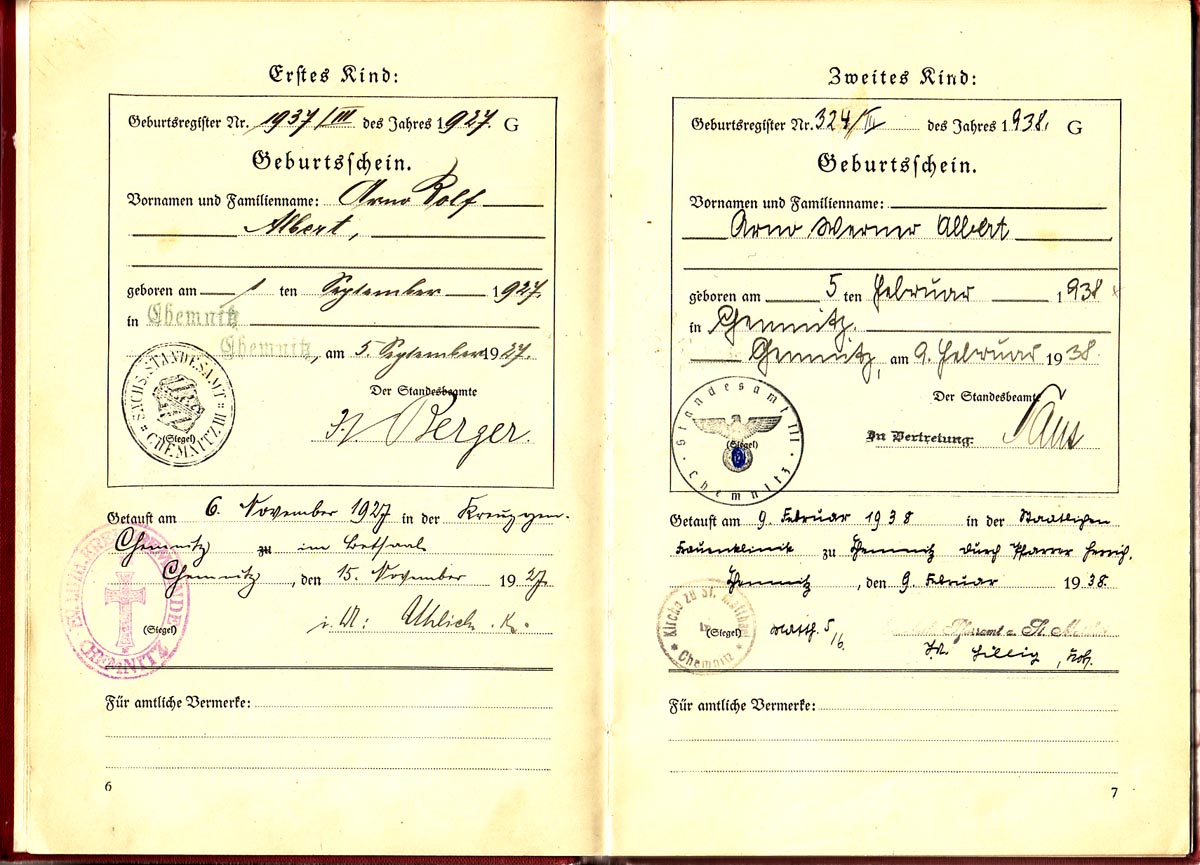 Erstes Kind:
Geburtsregister Nr. 1937/III des Jahres 1927. G
Geburtsschein.
Vornamen und Familienname: Arno Rolf
Albert,
geboren am 1 ten September 1927.
in Chemnitz
Chemnitz, am 5. September 1927.
Der Standesbeamte
Berger.
SÄCHS. STANDESAMT CHEMNITZ III
(Siegel)
Getauft am 6. November 1927 in der Kreuzgem.
Chemnitz zu im Betsaal
Chemnitz, den 15. November 1927.
i. A.: Uhlich. K.
CHEMNITZ
(Siegel)
Für amtliche Vermerke:
6
Zweites Kind:
Geburtsregister Nr. 324/III des Jahres 1938. G
Geburtsschein.
Vornamen und Familienname:
Arno Werner Albert
geboren am 5 ten Februar 1938
in Chemnitz.
Chemnitz, am 9. Februar 1938.
Der Standesbeamte
In Vertretung:
Standesamt III Chemnitz
(Siegel)
Getauft am 9. Februar 1938 in der Staatlichen
Frauenklinik zu Chemnitz durch Pfarrer
Chemnitz, den 9. Februar 1938.
Kirche zu St. Matthäi Chemnitz
(Siegel)
Matth. 5/6.
Hillig,
Für amtliche Vermerke:
7